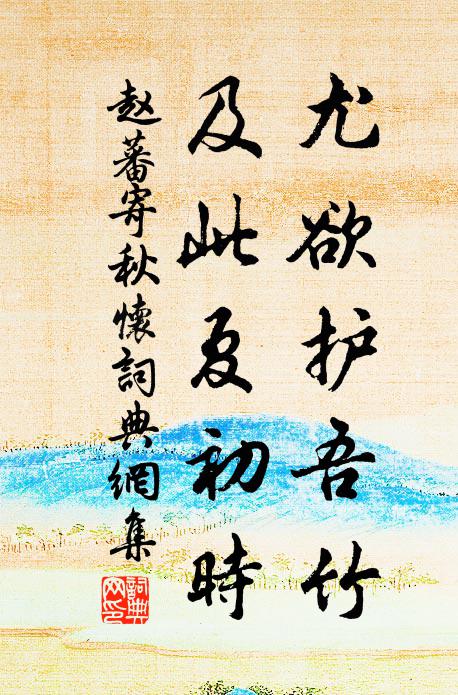 尤欲护吾竹
及此夏初時
赵蕃寄秋懷詞典網集
詞典网印